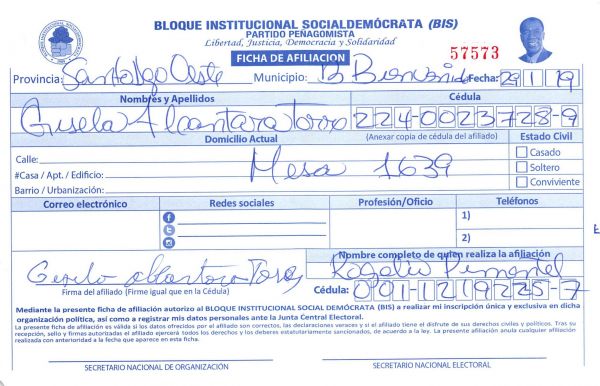 BLOQUE INSTITUCIONAL SOCIALDEMÓCRATA (BIS)
PARTIDO PEÑAGOMISTA
Libertad, Justicia, Democracia y Solidaridad
FICHA DE AFILIACIÓN
57573
Provincia: Santo Dgo Oeste Municipio: Bienvenido Fecha: 29 1 19
Nombres y Apellidos Cédula
Gisela Alcantara Torres 224-0023728-9
Domicilio Actual (Anexar copia de cédula del afiliado) Estado Civil
Calle: Casado
Mesa 1639
#Casa / Apt. / Edificio: Soltero
Barrio / Urbanización: Conviviente
Correo electrónico Redes sociales Profesión/Oficio Teléfonos
1)
2)
Nombre completo de quien realiza la afiliación
Rogelio Pimentel
Firma del afiliado (Firme igual que en la Cédula) Cédula: 001-1219225-7
Mediante la presente ficha de afiliación autorizo al BLOQUE INSTITUCIONAL SOCIAL DEMÓCRATA (BIS) a realizar mi inscripción única y exclusiva en dicha
organización política, así como a registrar mis datos personales ante la Junta Central Electoral.
La presente ficha de afiliación es válida si los datos ofrecidos por el afiliado son correctos, las declaraciones veraces y si el titular tiene el disfrute de sus derechos civiles y políticos. Tras su
recepción, sello y firmas autorizadas el afiliado ejercerá todos los derechos y los deberes estatutariamente sancionados, de acuerdo a la ley. La presente afiliación anula cualquier afiliación
realizada con anterioridad a la fecha que aparece en esta ficha.
SECRETARIO NACIONAL DE ORGANIZACIÓN SECRETARIO NACIONAL ELECTORAL